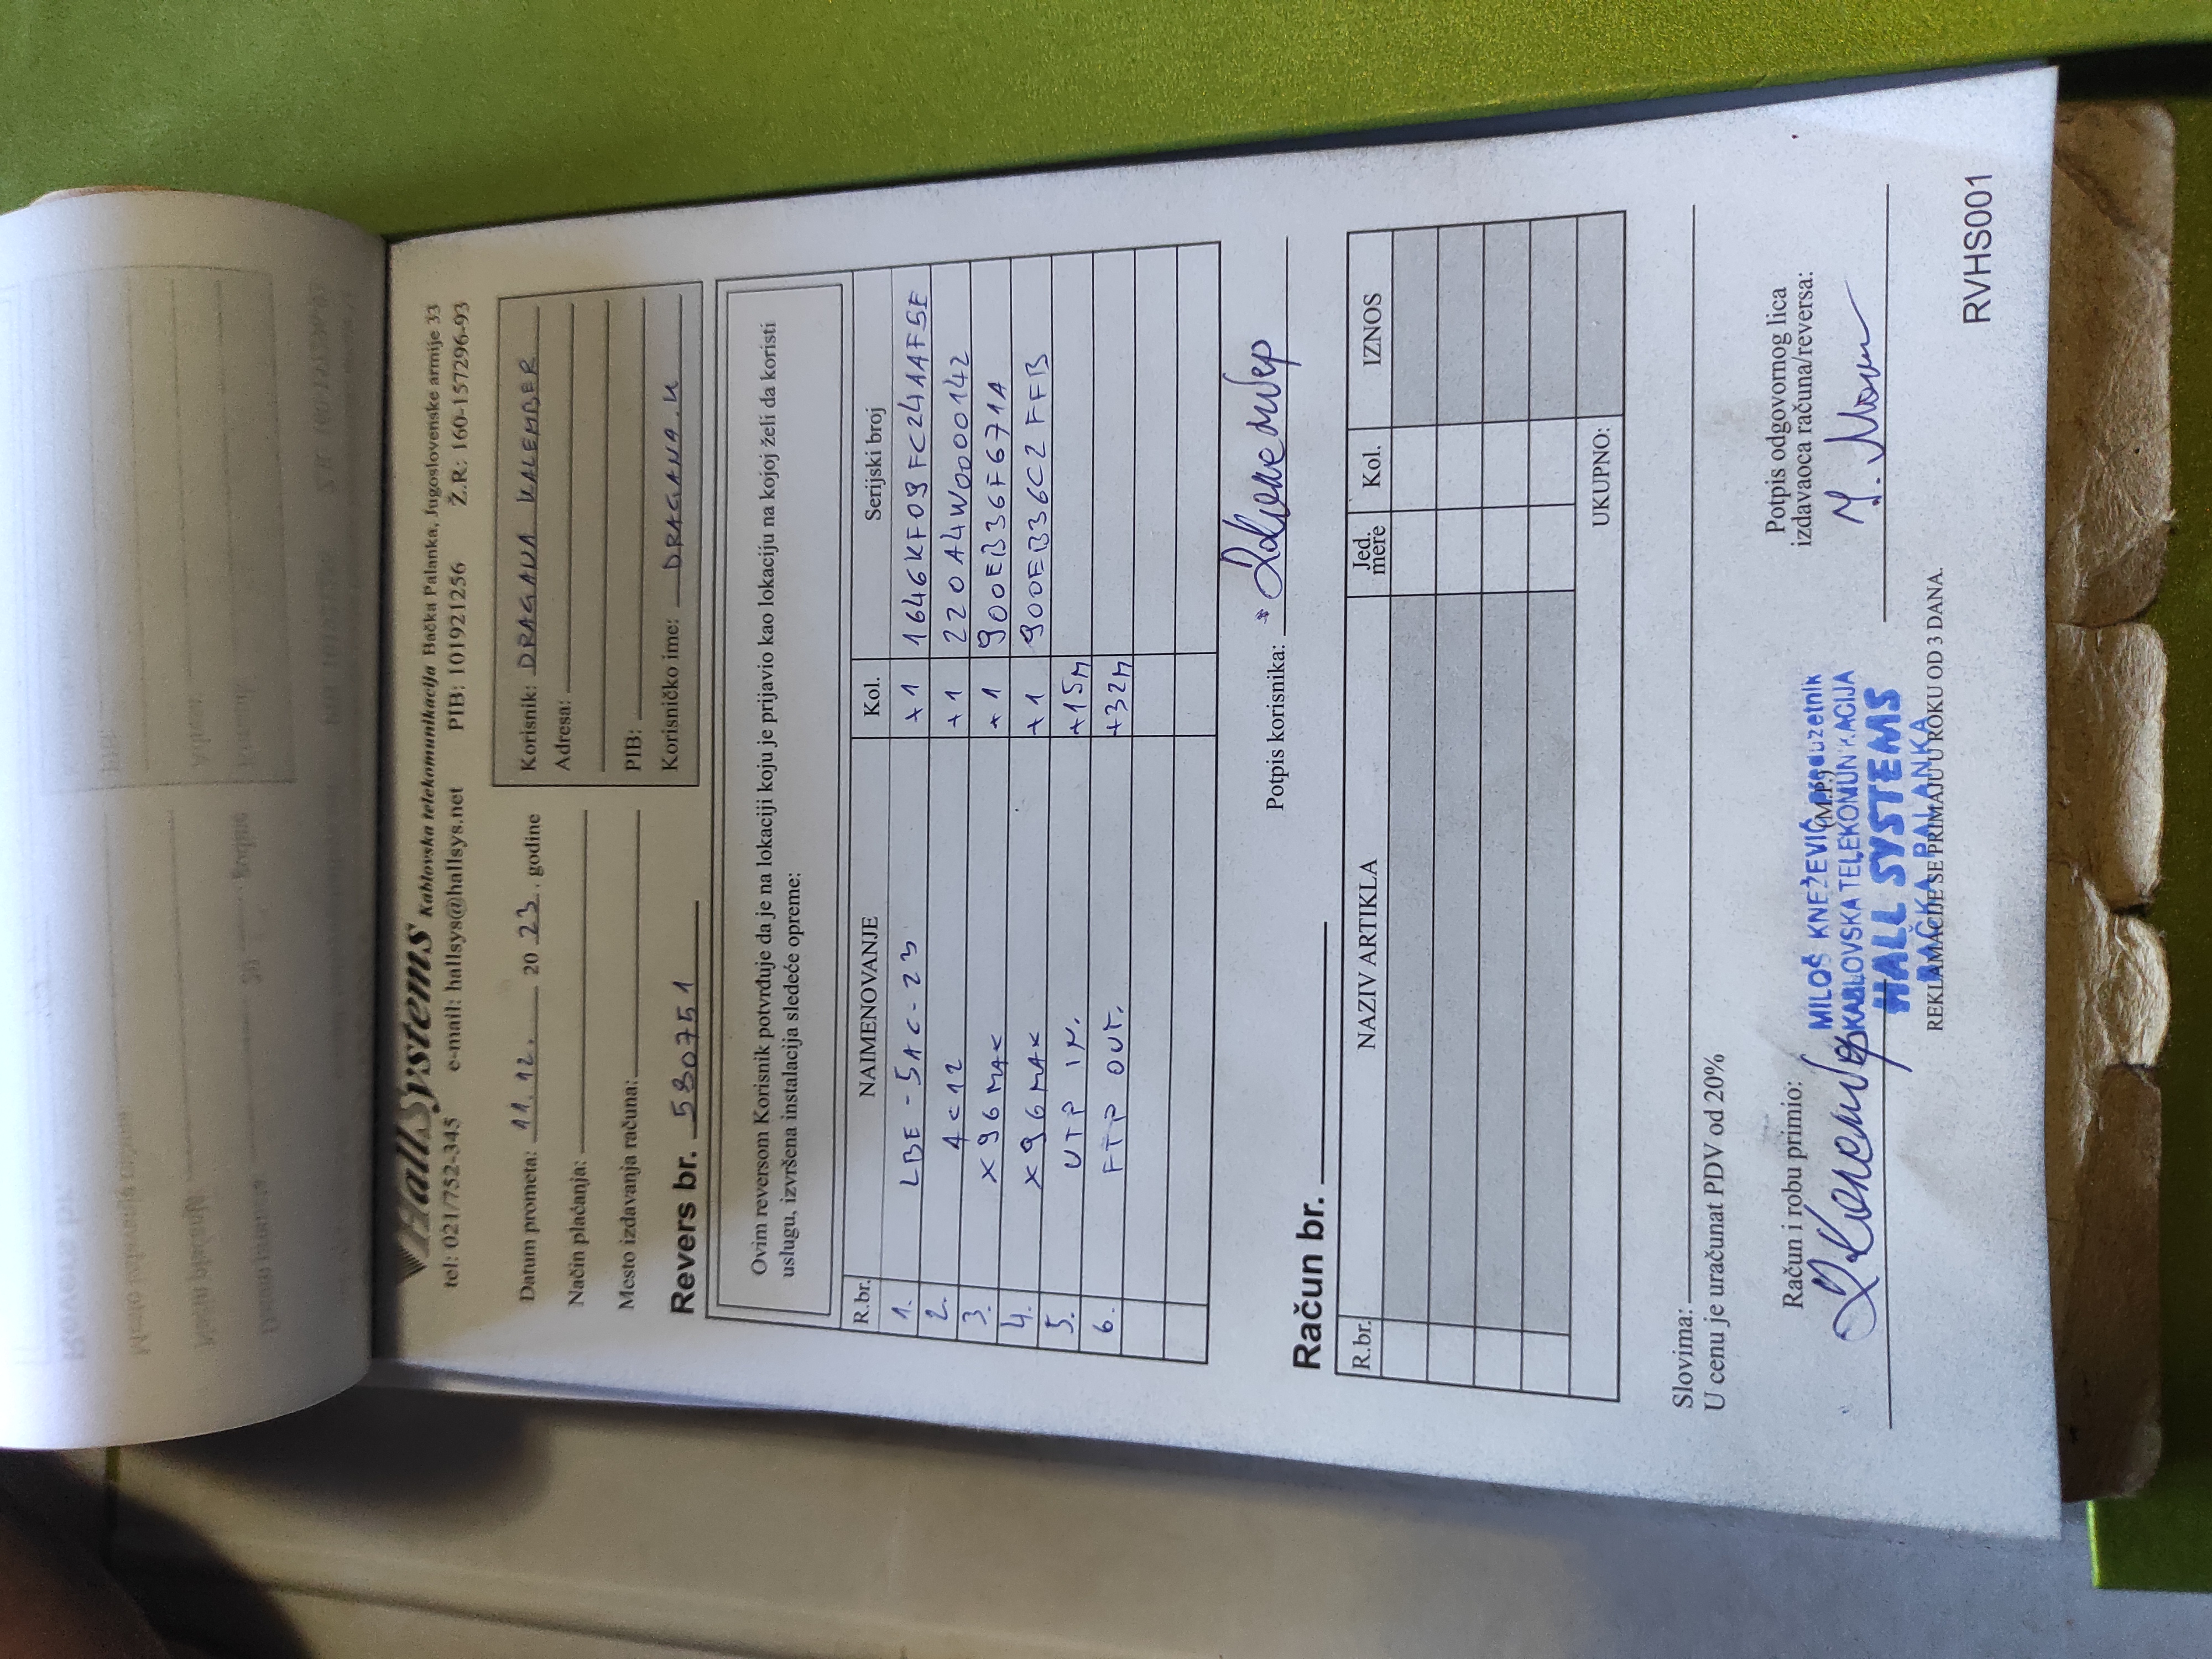 HallSystems Kablovska telekomunikacija Bačka Palanka, Jugoslovenske armije 33
tel: 021/752-345 e-mail: hallsys@hallsys.net PIB: 101921256 Ž.R: 160-157296-93
Datum prometa: 11.12. 20 23. godine
Način plaćanja:
Mesto izdavanja računa:
Korisnik: DRAGANA KALEMBER
Adresa:
PIB:
Korisničko ime: DRAGANA.K
Revers br. 530751
Ovim reversom Korisnik potvrđuje da je na lokaciji koju je prijavio kao lokaciju na kojoj želi da koristi
uslugu, izvršena instalacija sledeće opreme:
R.br. NAIMENOVANJE Kol. Serijski broj
1. LBE-5AC-23 +1 1646KF09FC24AAF5E
2. 4C12 +1 220A4W0000142
3. X96MAX +1 900EB36F671A
4. X96MAX +1 900EB36C2FFB
5. UTP IN. +15M
6. FTP OUT. +32M
Potpis korisnika:
Račun br.
R.br. NAZIV ARTIKLA Jed. mere Kol. IZNOS
UKUPNO:
Slovima:
U cenu je uračunat PDV od 20%
Račun i robu primio:
(M.P.)
Potpis odgovornog lica
izdavaoca računa/reversa:
MILOŠ KNEŽEVIĆ preduzetnik
KABLOVSKA TELEKOMUNIKACIJA
HALL SYSTEMS
BAČKA PALANKA
REKLAMACIJE SE PRIMAJU U ROKU OD 3 DANA.
RVHS001